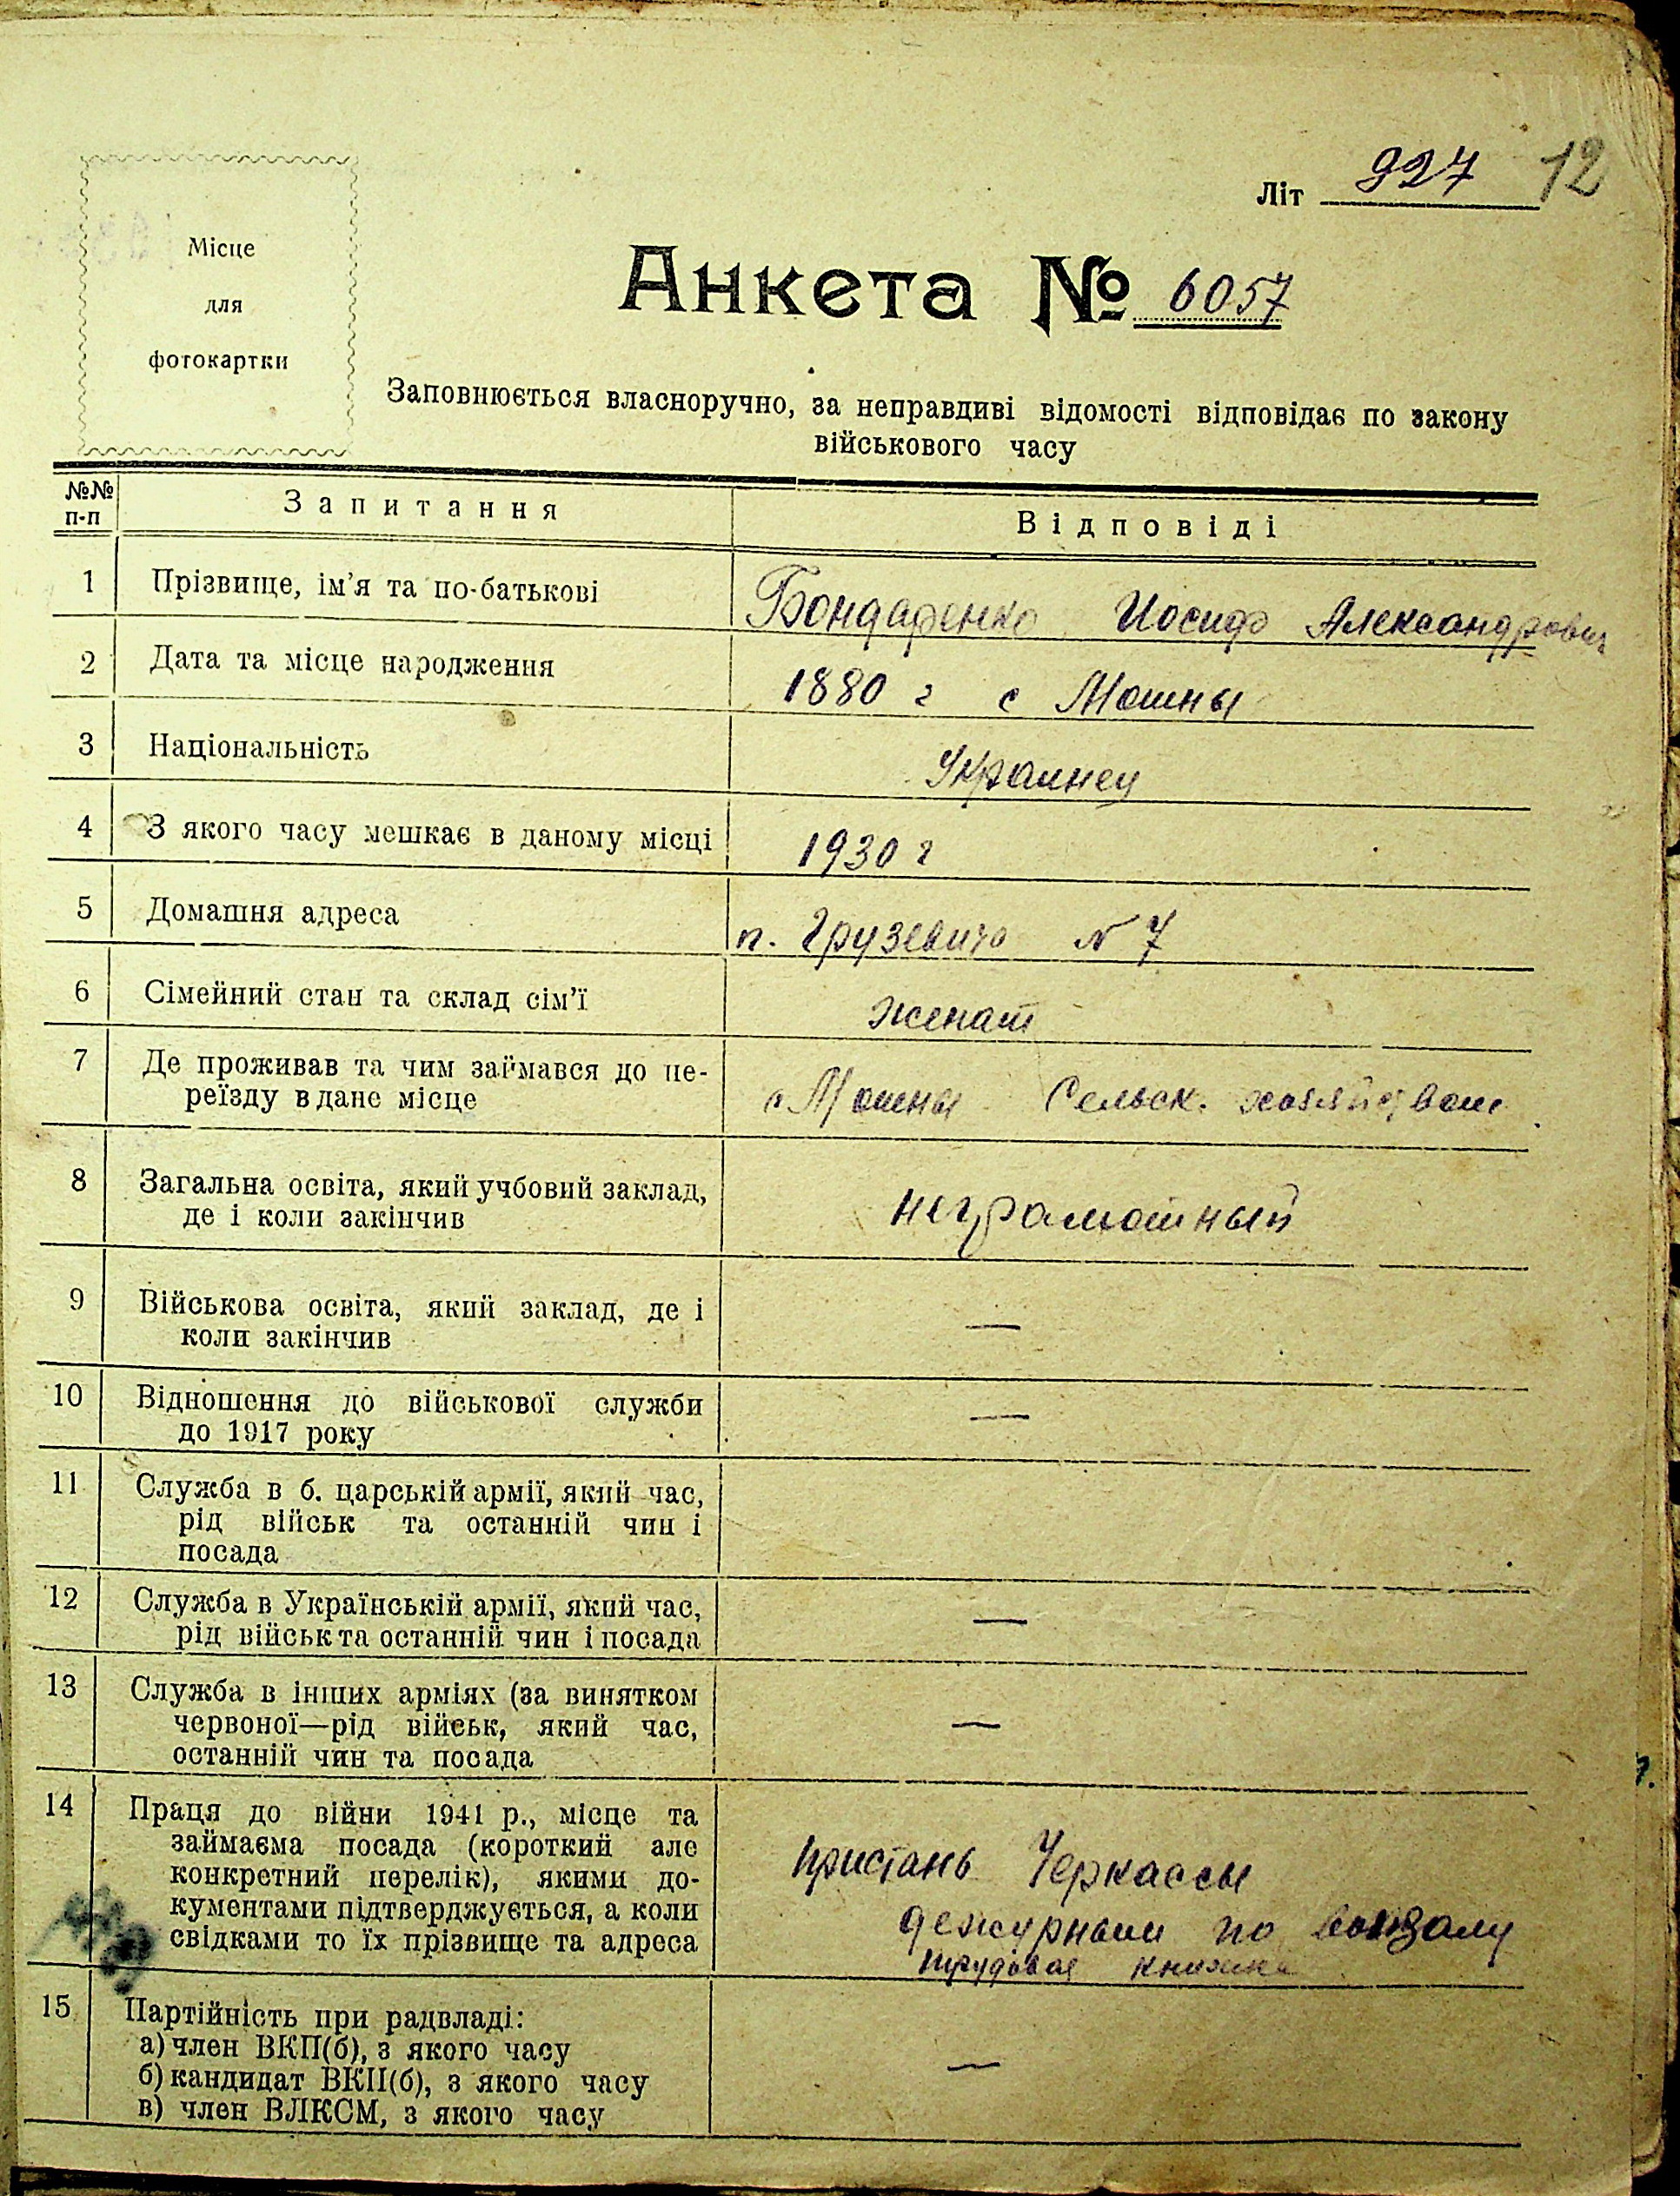 Літ 927 12
Місце
для
фотокартки
Анкета № 6057
Заповнюється власноручно, за неправдиві відомості відповідає по закону
військового часу
№№ п-п Запитання Відповіді
1 Прізвище, ім'я та по-батькові Бондаренко Иосиф Александрович
2 Дата та місце народження 1880 г с Мошны
3 Національність Украинец
4 З якого часу мешкає в даному місці 1930 г
5 Домашня адреса п. Грузевича N 7
6 Сімейний стан та склад сім'ї женат
7 Де проживав та чим займався до пе-
реїзду в дане місце с Мошны Сельск. хозяйством
8 Загальна освіта, який учбовий заклад,
де і коли закінчив неграмотный
9 Військова освіта, який заклад, де і
коли закінчив —
10 Відношення до військової служби
до 1917 року —
11 Служба в б. царській армії, який час,
рід військ та останній чин і
посада
12 Служба в Українській армії, який час,
рід військ та останній чин і посада —
13 Служба в інших арміях (за винятком
червоної—рід військ, який час,
останній чин та посада —
14 Праця до війни 1941 р., місце та
займаєма посада (короткий але
конкретний перелік), якими до- пристань Черкассы
кументами підтверджується, а коли дежурным по вокзалу
свідками то їх прізвище та адреса трудовая книжка
15 Партійність при радвладі:
а) член ВКП(б), з якого часу
б) кандидат ВКП(б), з якого часу —
в) член ВЛКСМ, з якого часу